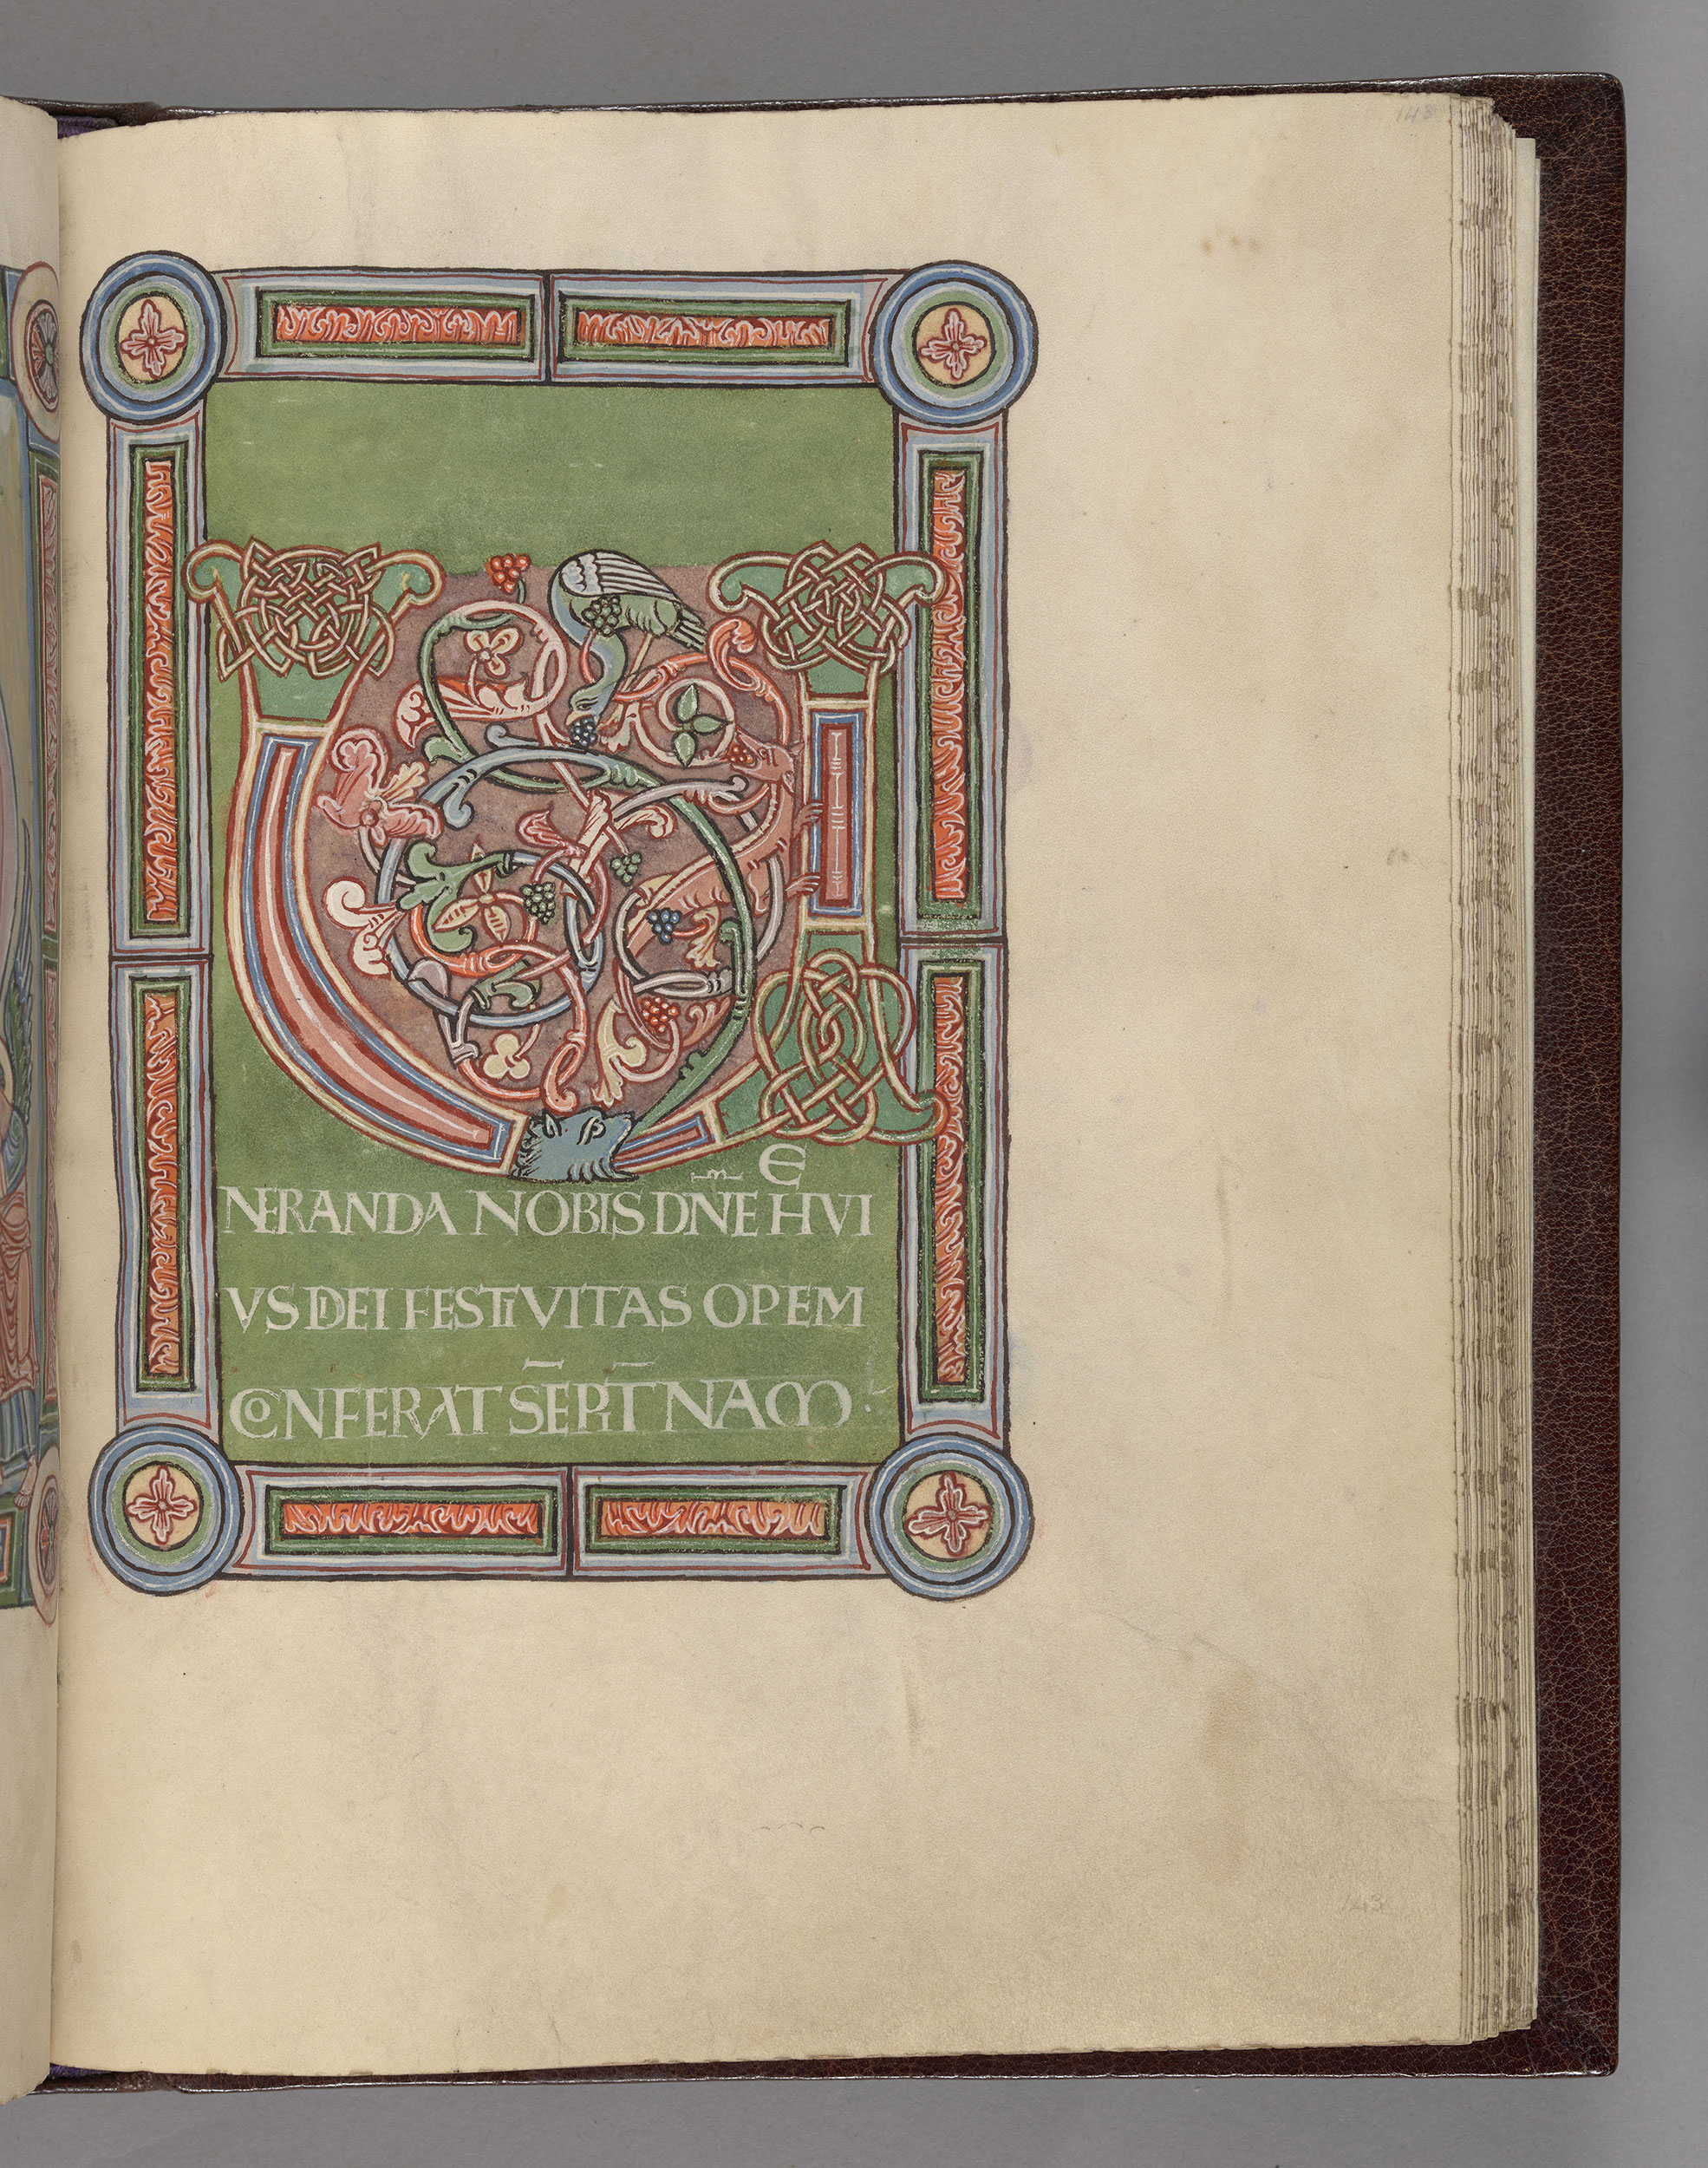 143
V
E
NERANDA NOBIS DN̄E HVI
VS DIEI FESTIVITAS OPEM
CONFERAT SĒPIT̄NAM·
143